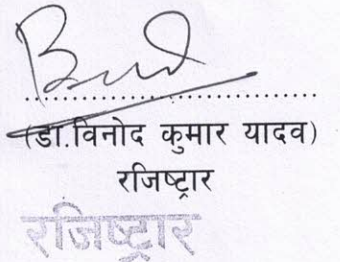 (डा.विनोद कुमार यादव)
रजिष्ट्रार
रजिष्ट्रार